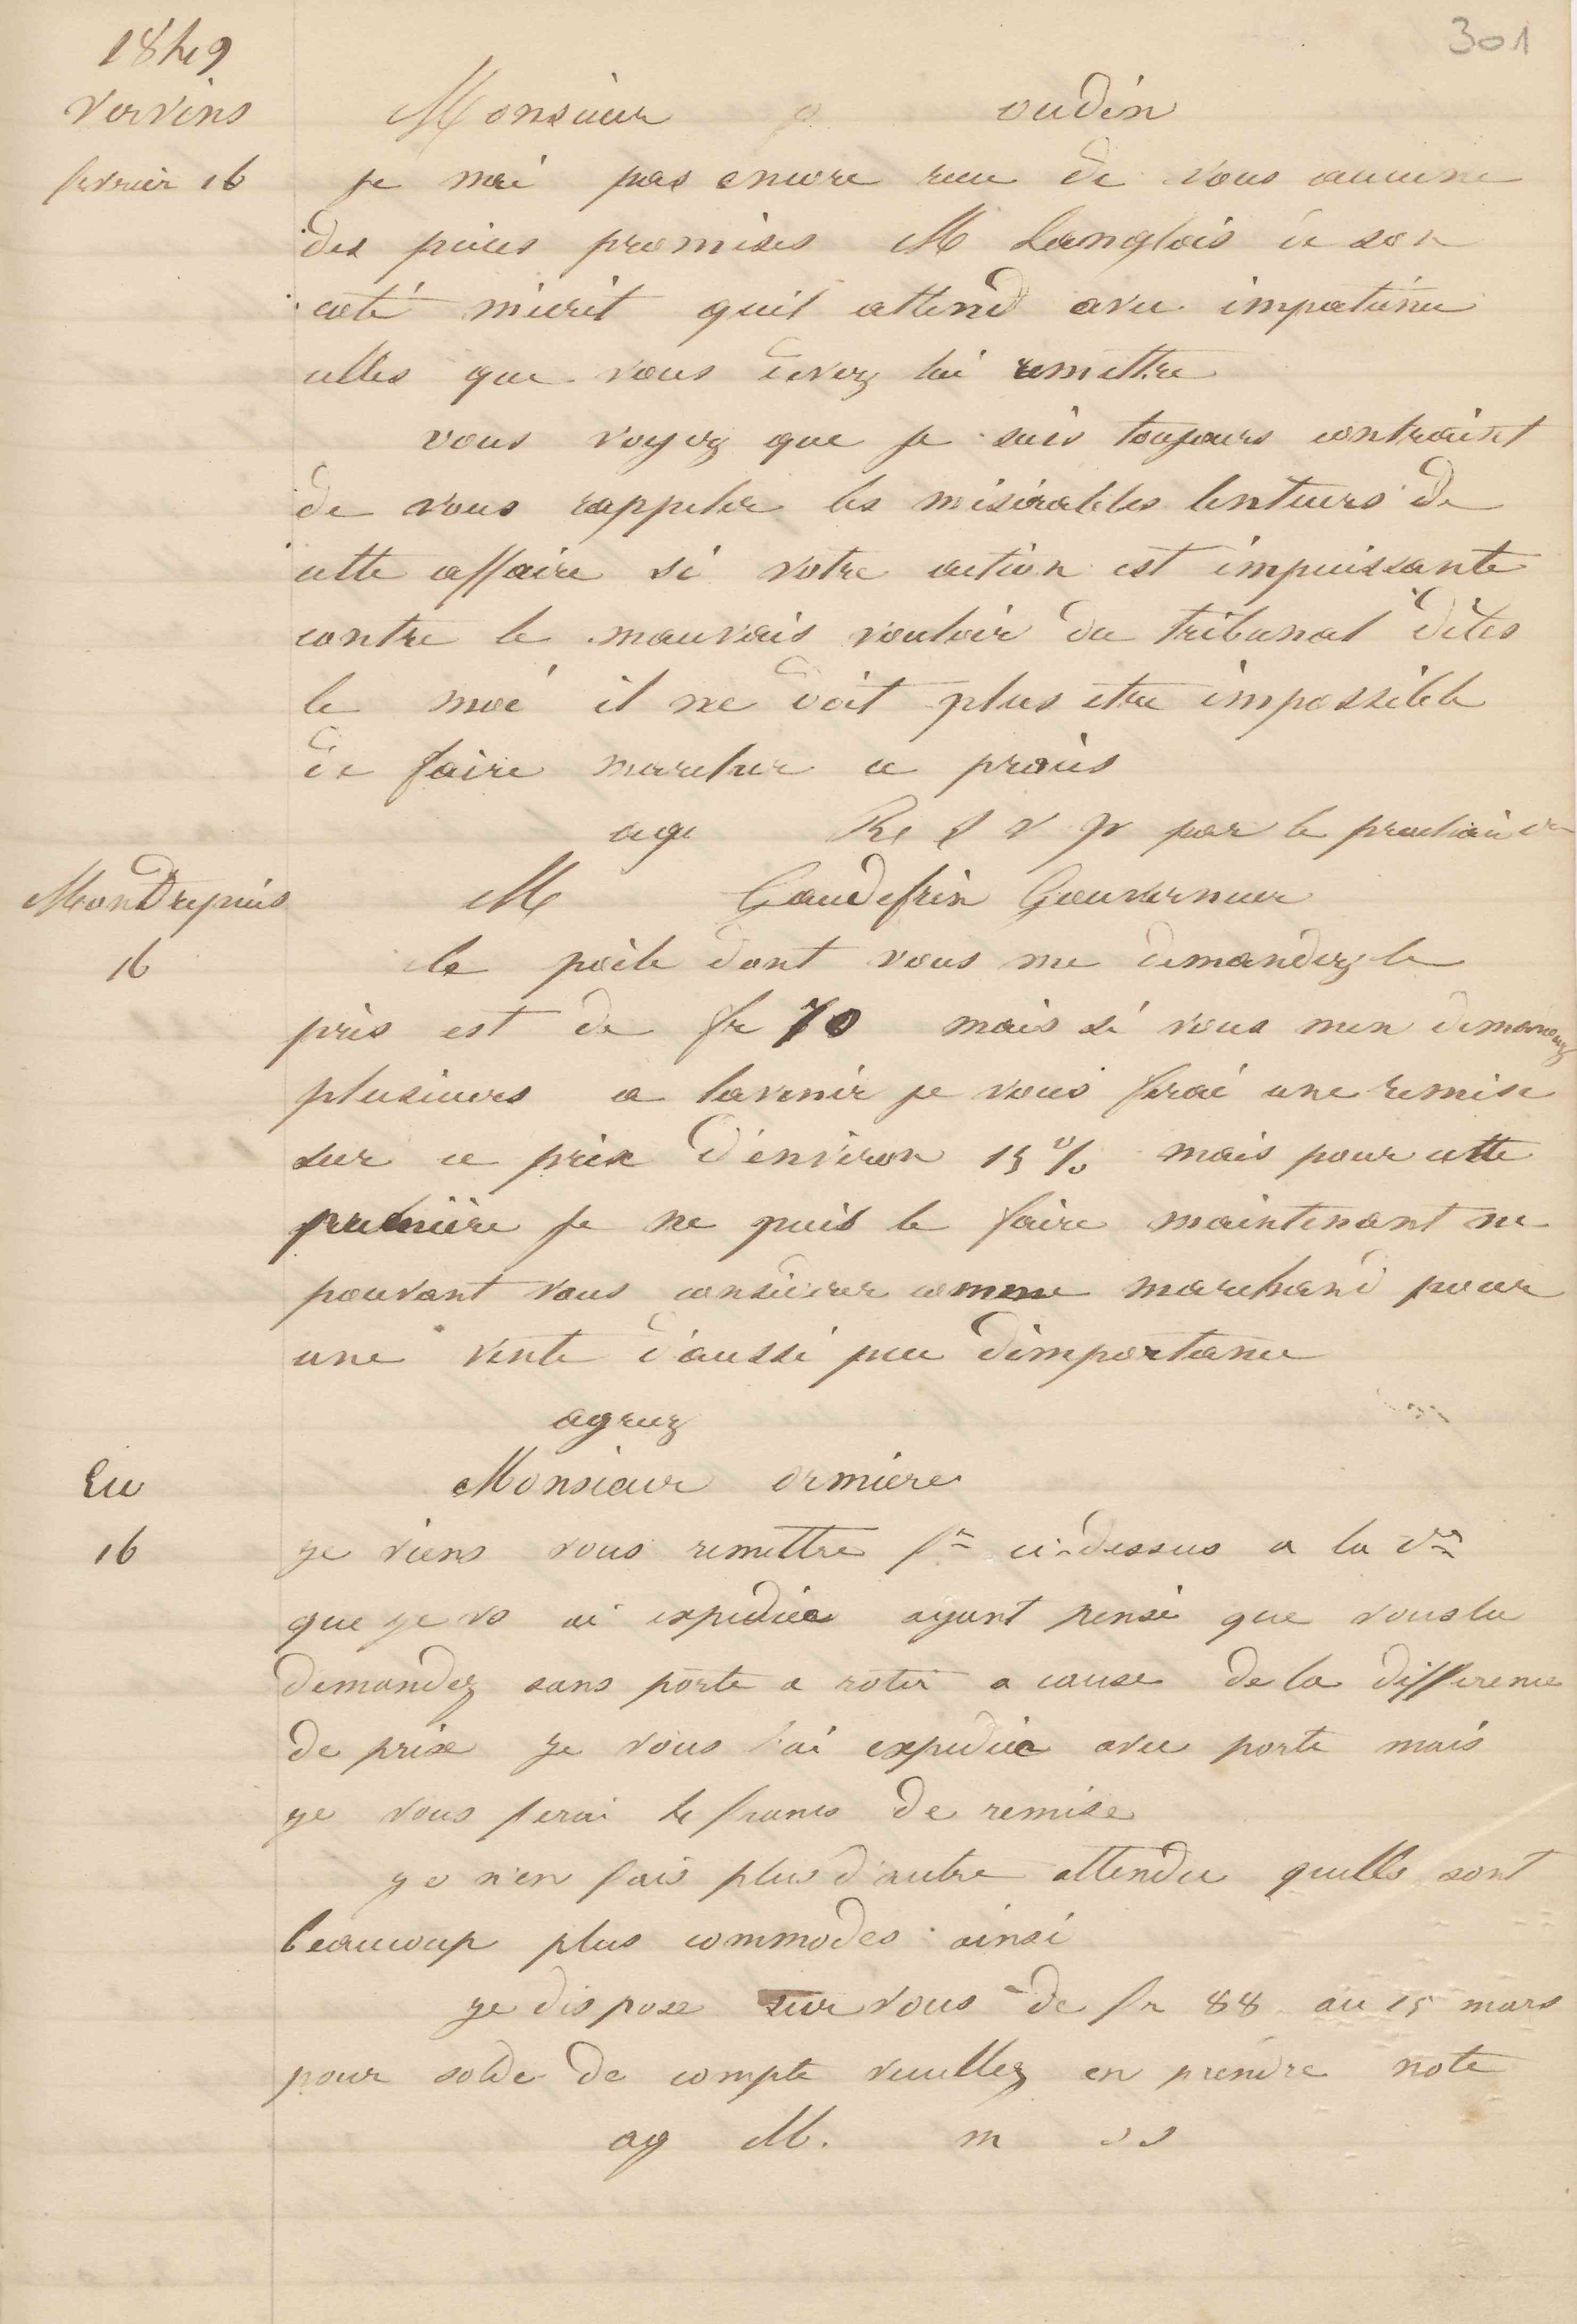 301
1849
Vervins
fevrier 16
Monsieur oudin
je nai pas encore recu de vous aucune
des pieces promises M Langlois de son
coté mecrit quil attend avec impatience
celles que vous devez lui remettre
vous voyez que je suis toujours contraint
de vous rappeler les misérables lenteurs de
cette affaire si votre action est impuissante
contre le mauvais vouloir du tribunal dites
le moi il ne doit plus etre impossible
de faire marcher ce procès
agr R S V P par le prochain cer
Mondrepuis
16
M Gaudefrin Gouverneur
le poele dont vous me demandez le
prix est de fr 70 mais si vous men demandez
plusieurs a lavenir je vous ferai une remise
sur ce prix d'environ 15 % mais pour cette
première je ne puis le faire maintenant ne
pouvant vous considerer comme marchand pour
une vente d'aussi peu dimportance
agreez
Eu
16
Monsieur ormiere
je viens vous remettre fre ci-dessus a la Cre
que je vs ai expediée ayant pensé que vous la
demandez sans porte a rotir a cause de la difference
de prix je vous l'ai expediée avec porte mais
je vous ferai 4 francs de remise
je n'en fais plus d'autre attendu quelles sont
beaucoup plus commodes ainsi
je dispose sur vous de fr 88 au 15 mars
pour solde de compte veuillez en prendre note
ag M. m ss